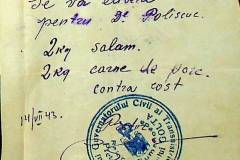 Se va elibera
pentru Dl Poliscuc.
2 kg salam.
2 kg carne de porc.
contra cost
14/VII 43.
Guvernatorului Civil al Trans
GOLTA